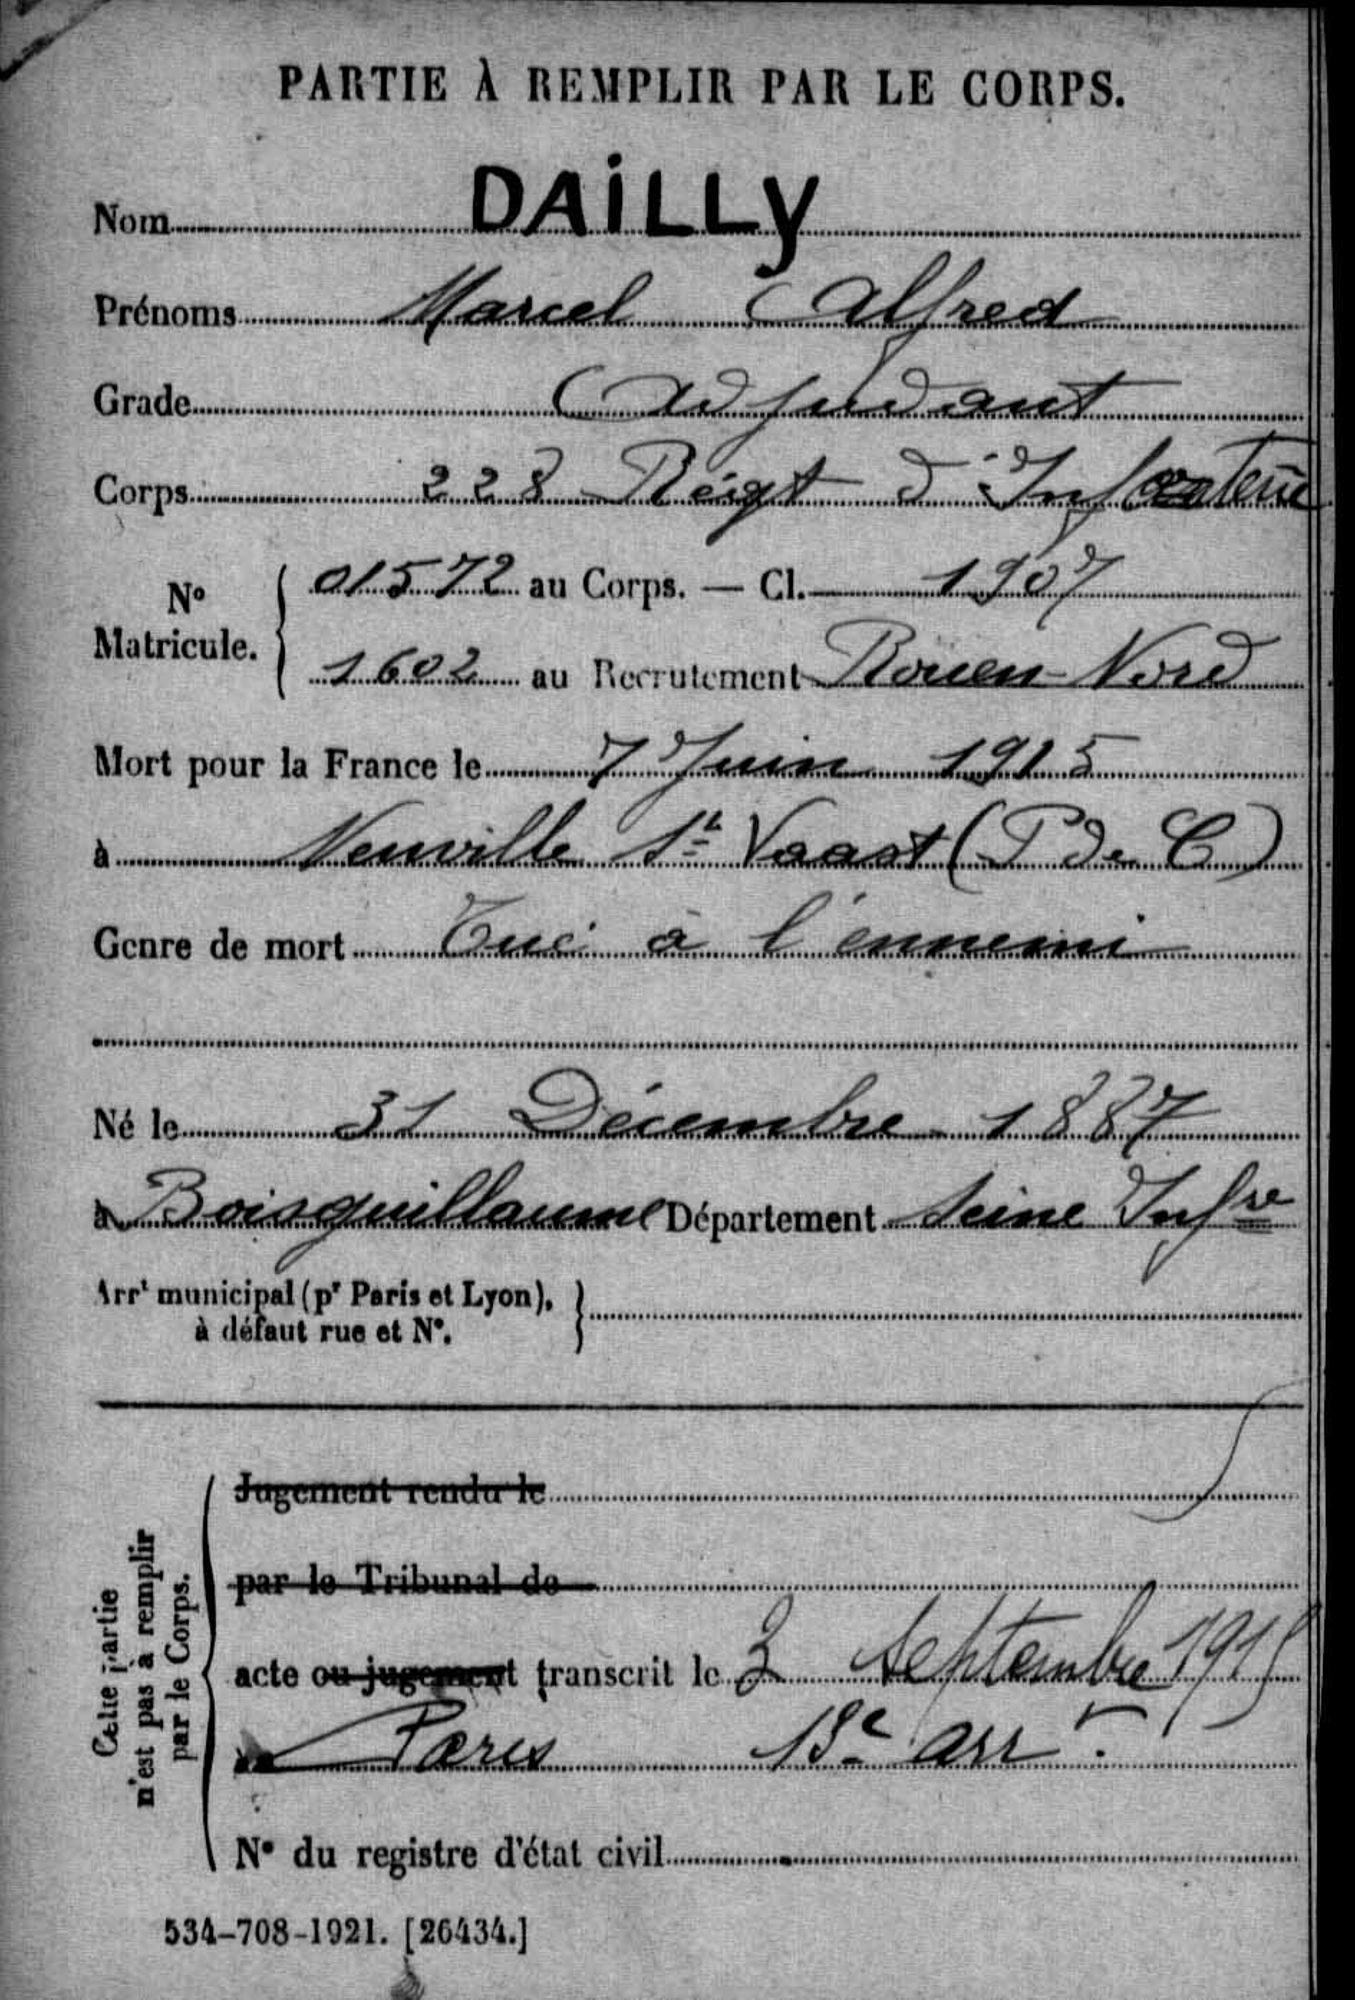 PARTIE À REMPLIR PAR LE CORPS.
Nom DAiLLy
Prénoms Marcel Alfred
Grade Adjudant
Corps 228 Régt d'Infanterie
N° Matricule. 01572 au Corps. — Cl. 1907
1602 au Recrutement Rouen-Nord
Mort pour la France le 7 Juin 1915
à Neuville St Vaast (P de C)
Genre de mort Tué à l'ennemi
Né le 31 Décembre 1887
à Boisguillaume Département Seine Infre
Arrt municipal (pr Paris et Lyon),
à défaut rue et N°.
Cette partie
n'est pas à remplir
par le Corps.
Jugement rendu le
par le Tribunal de
acte ou jugement transcrit le 3 Septembre 1915
à Paris arrt.
N° du registre d'état civil
534-708-1921. [26434.]